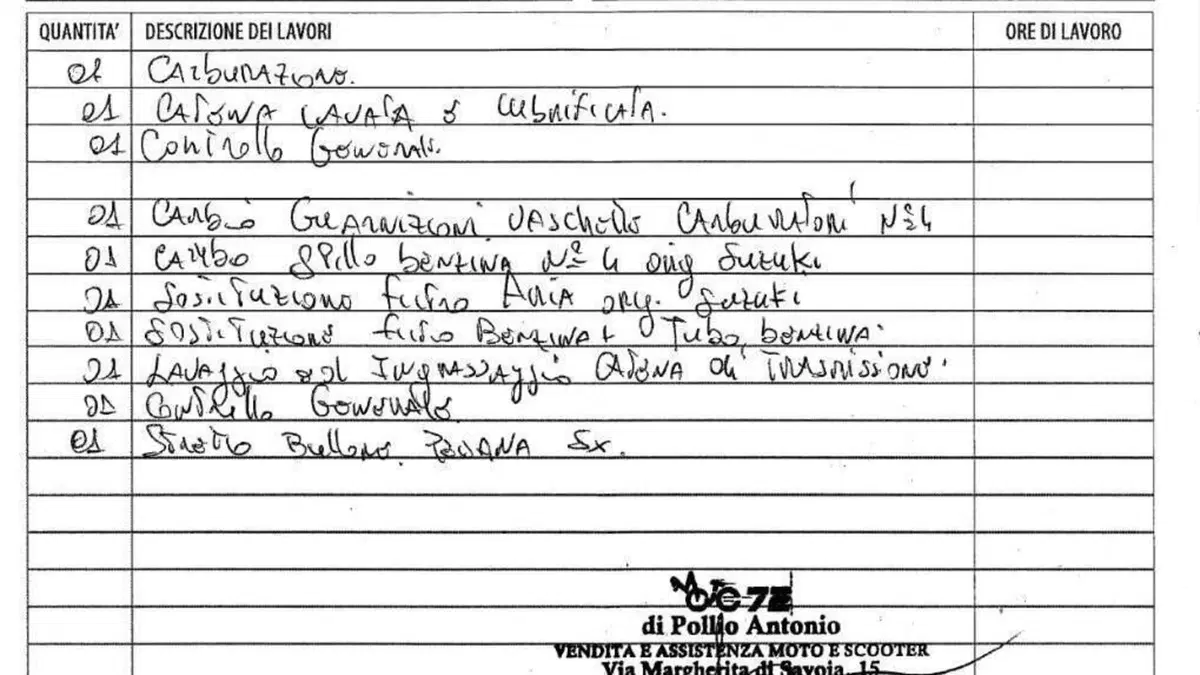 QUANTITA' DESCRIZIONE DEI LAVORI ORE DI LAVORO
01 CARBURAZIONE.
01 CATENA LAVATA E LUBRIFICATA.
01 Controllo Generale.
01 CAMBIO GUARNIZIONI VASCHETTE CARBURATORI N°4
01 CAMBIO SPILLO BENZINA N° 4 orig SUZUKI
01 Sostituzione filtro ARIA org. Suzuki
01 SOSTITUZIONE filtro BENZINA + Tubo benzina.
01 LAVAGGIO ed INGRASSAGGIO CATENA di TRASMISSIONE.
01 Controllo GENERALE
01 Stretto Bullone PEDANA Sx.
di Pollio Antonio
VENDITA E ASSISTENZA MOTO E SCOOTER
Via Margherita di Savoia, 15